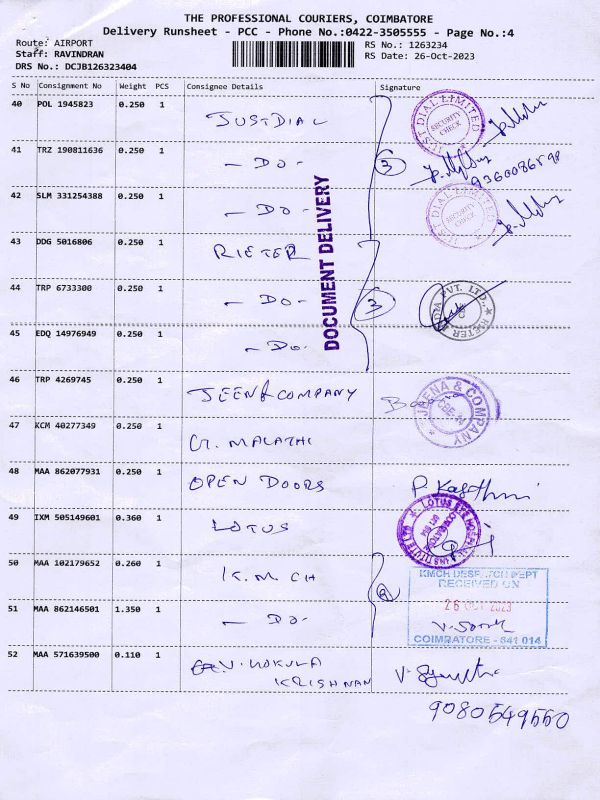 THE PROFESSIONAL COURIERS, COIMBATORE
Delivery Runsheet - PCC - Phone No.:0422-3505555 - Page No.:4
Route: AIRPORT
Staff: RAVINDRAN
DRS No.: DCJB126323404
RS No.: 1263234
RS Date: 26-Oct-2023
S No Consignment No Weight PCS Consignee Details Signature
40 POL 1945823 0.250 1 JUSTDIAL
JUST DIAL LIMITED
SECURITY CHECK
41 TRZ 190811636 0.250 1 - DO - 3
9360086598
42 SLM 331254388 0.250 1 - DO -
JUST DIAL LIMITED
SECURITY CHECK
DOCUMENT DELIVERY
43 DDG 5016806 0.250 1 RIETER
44 TRP 6733300 0.250 1 - DO - 3
RIETER INDIA PVT. LTD.,
45 EDQ 14976949 0.250 1 - DO -
46 TRP 4269745 0.250 1 JEEN & COMPANY
JEENA & COMPANY
47 KCM 40277349 0.250 1 G. MALATHI
48 MAA 862077931 0.250 1 OPEN DOORS
49 IXM 505149601 0.360 1 LOTUS
LOTUS EYE HOSPITAL INSTITUTE LTD
50 MAA 102179652 0.260 1 K.M.CH
KMCH DESPATCH DEPT
RECEIVED ON
26 OCT 2023
51 MAA 862146501 1.350 1 - DO -
COIMBATORE - 641 014
52 MAA 571639500 0.110 1 V. GOKULA
KRISHNAN
9080549550